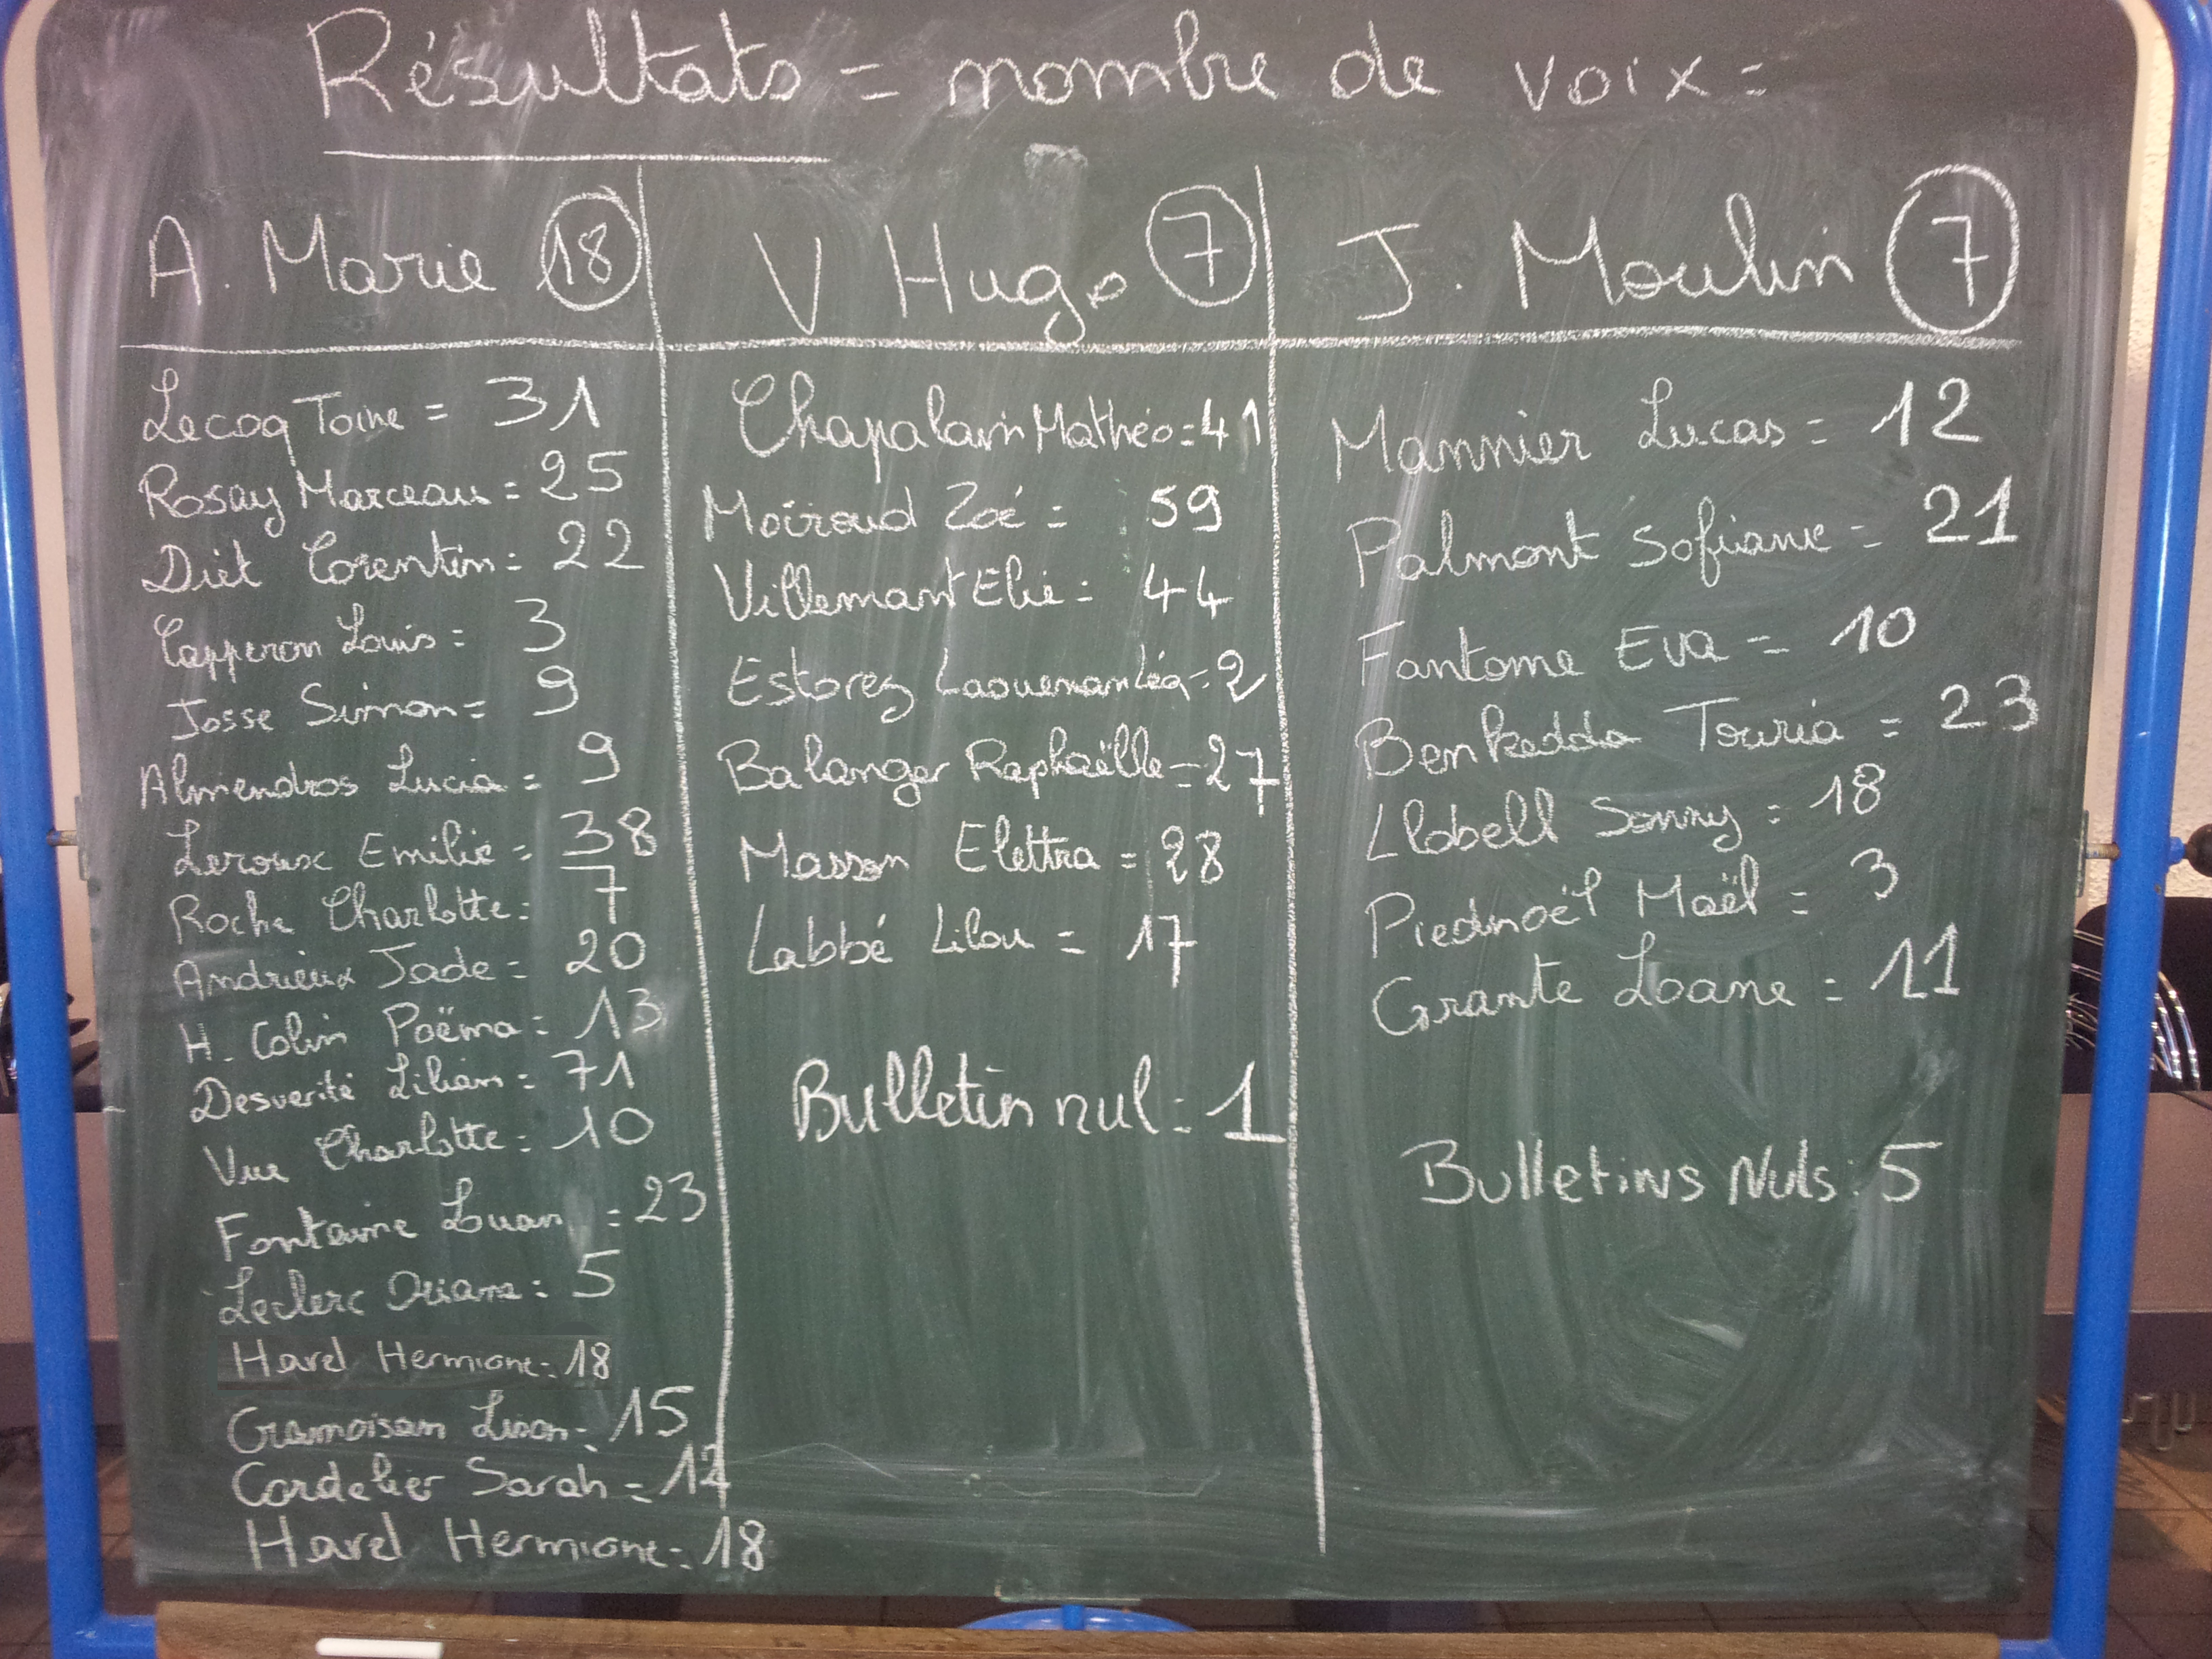 Résultats = nombre de voix =
A. Marie 18
Lecoq Toine = 31
Rosay Marceau = 25
Diet Corentin = 22
Capperon Louis = 3
Josse Simon = 9
Almendros Lucia = 9
Leroux Emilie = 38
Roche Charlotte = 7
Andrieux Jade = 20
H. Colin Poëma = 13
Desverité Lilian = 71
Vue Charlotte = 10
Fontaine Luan = 23
Leclerc Oriane = 5
Havel Hermione = 18
Cramoisan Lison = 15
Cordelier Sarah = 12
Havel Hermione = 18
V Hugo 7
Chapalain Mathéo = 41
Moiroud Zoé = 59
Villemant Elie = 44
Estorez Laouenan Léa = 2
Balanger Raphaëlle = 27
Masson Elettra = 28
Labbé Lilou = 17
Bulletin nul = 1
J. Moulin 7
Mannier Lucas = 12
Palmont Sofiane = 21
Fantome Eva = 10
Benkedda Touria = 23
Llobell Sonny = 18
Piednoël Maël = 3
Grante Loane = 11
Bulletins Nuls : 5